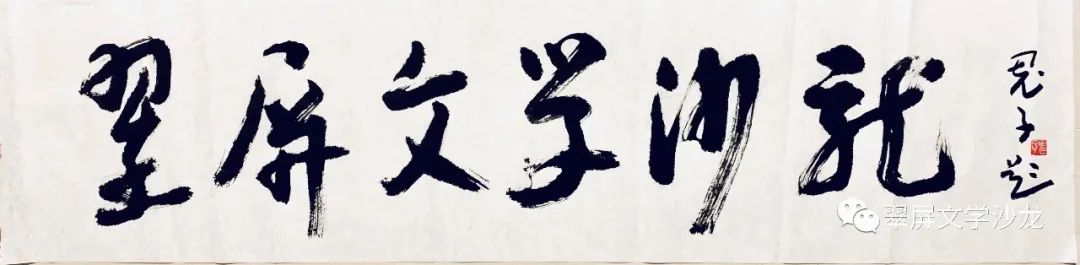 翠屏文学沙龍
鬼子题
翠屏文学沙龙